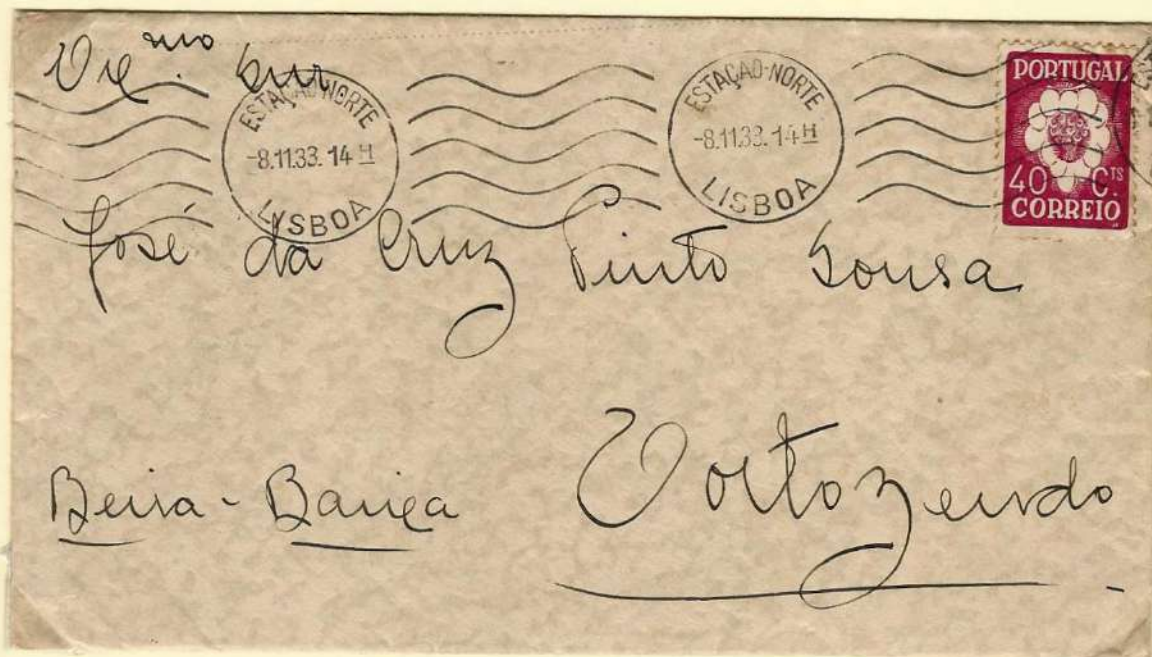 Ex.mo Snr
ESTAÇÃO-NORTE
-8.11.33. 14H
LISBOA
ESTAÇÃO-NORTE
-8.11.33. 14H
LISBOA
PORTUGAL
40 CTS.
CORREIO
José da Cruz Pinto Sousa
Tortozendo
Beira-Baixa